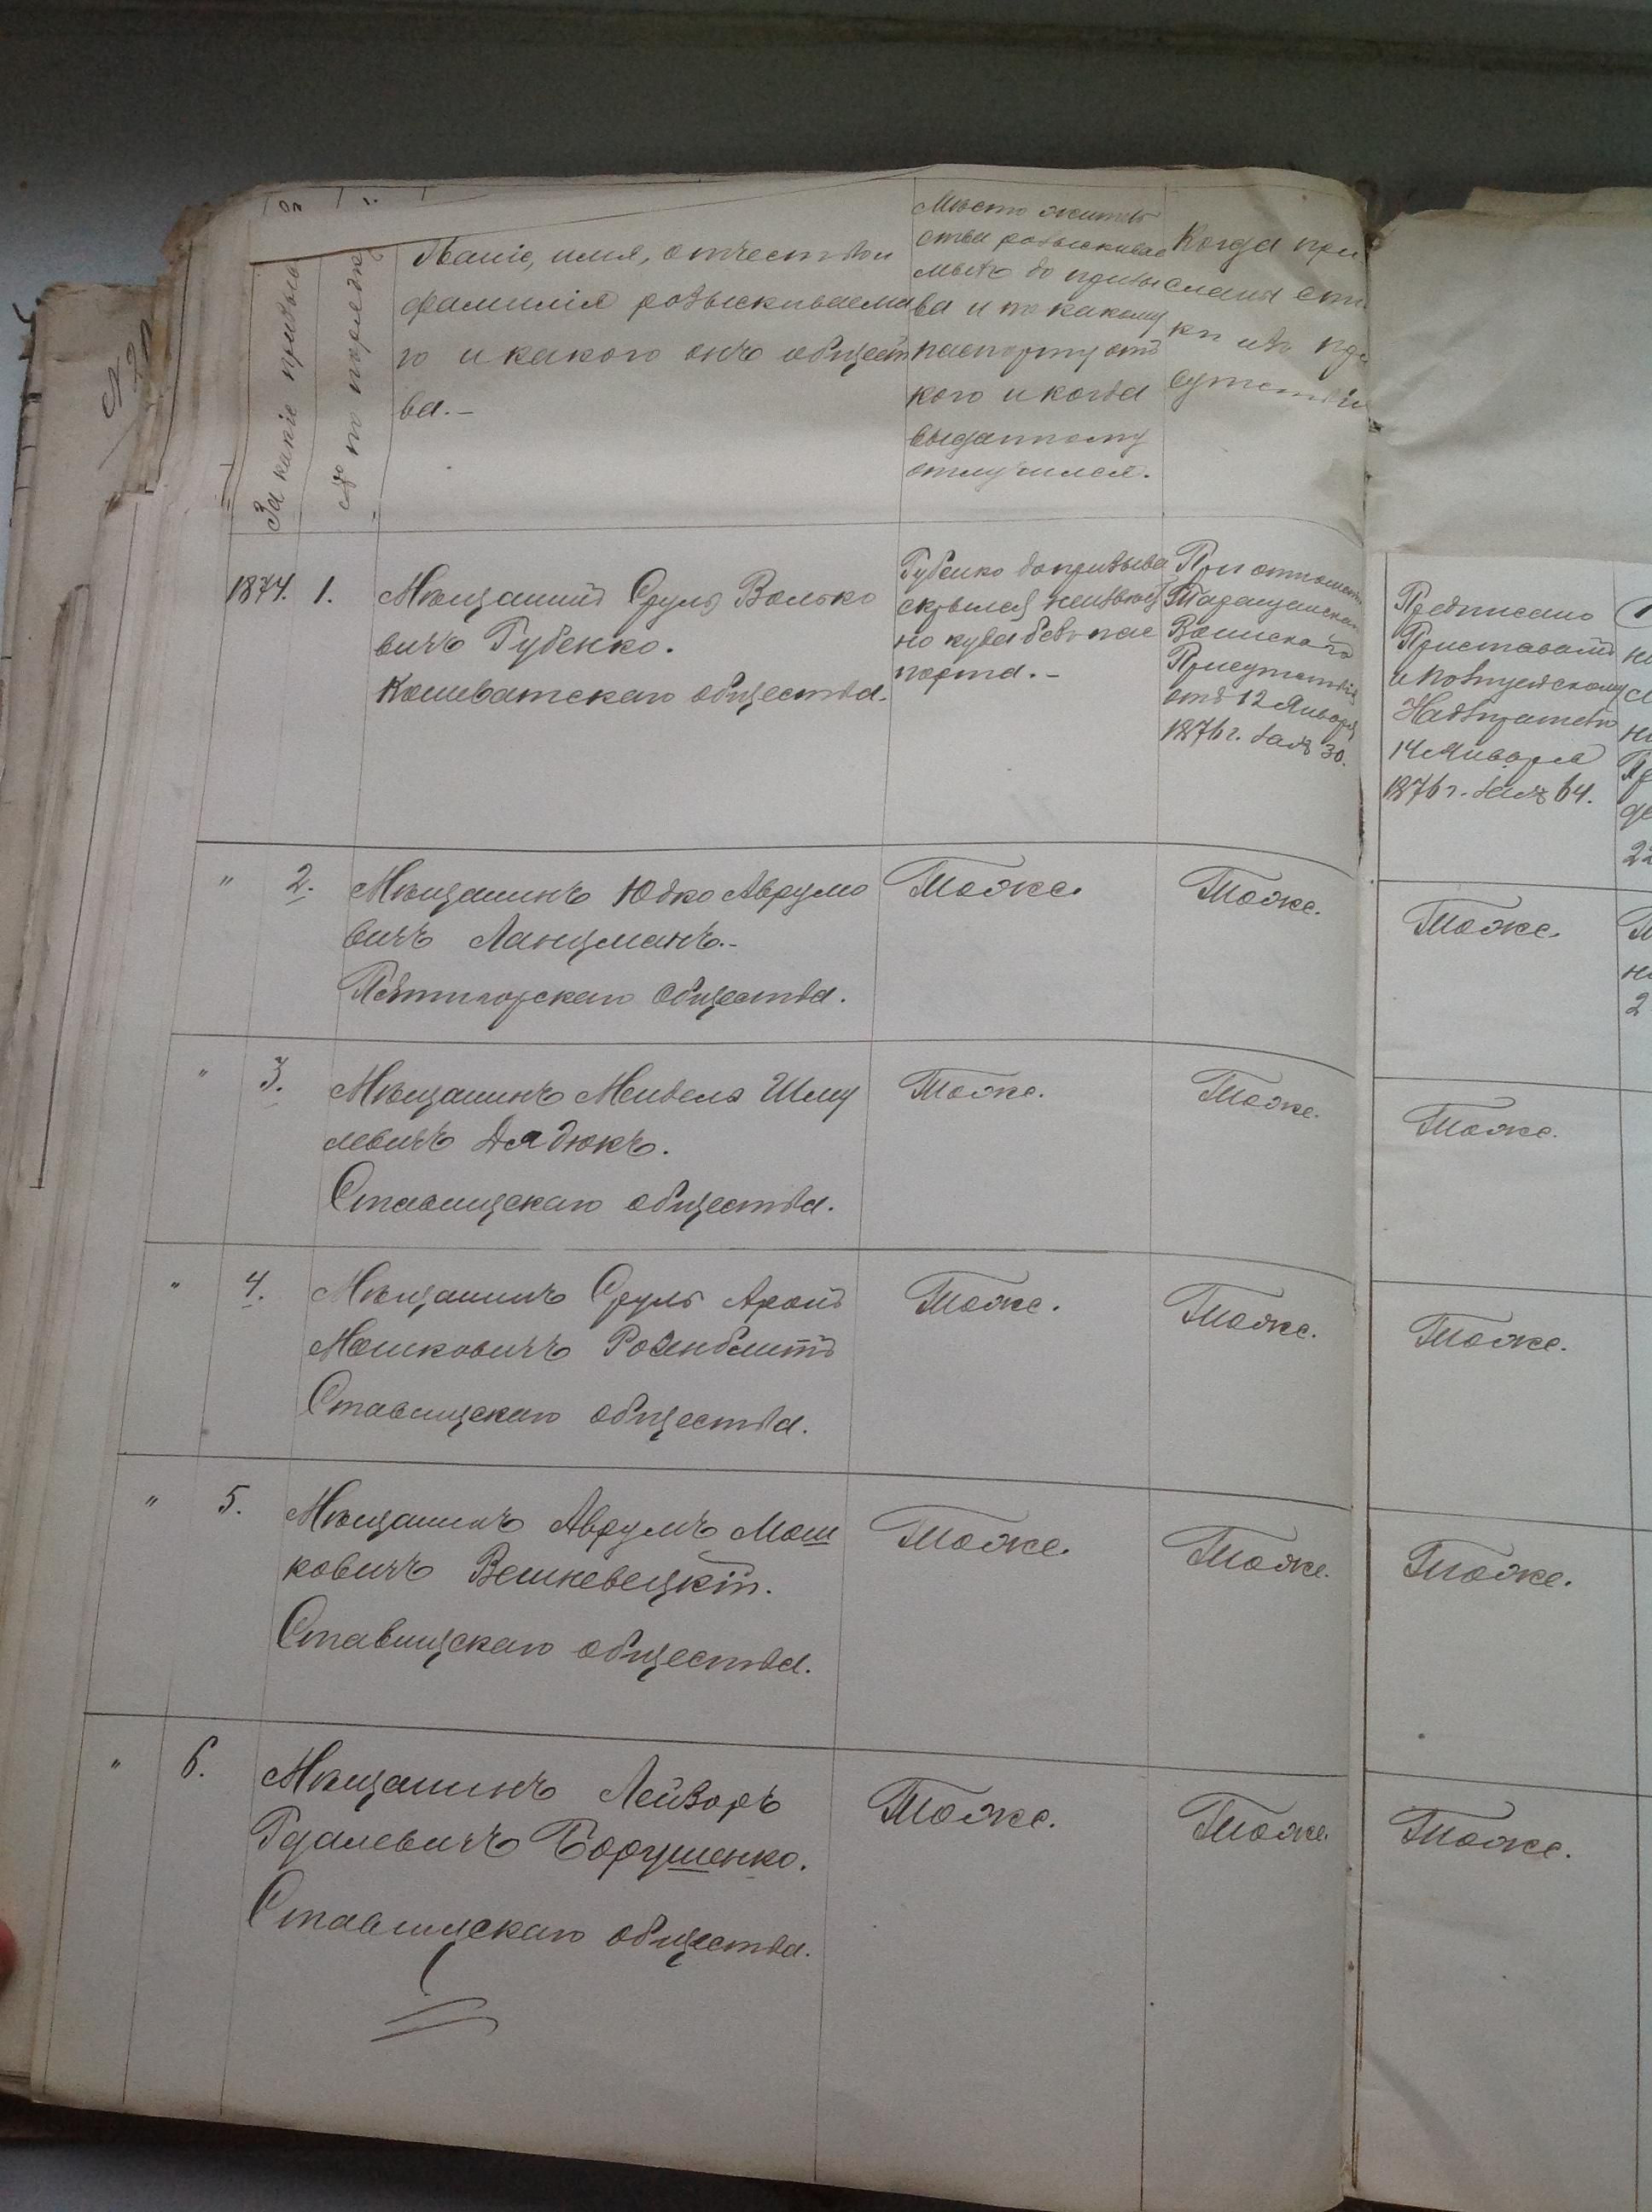 За какiе призывы
№ по порядку
Званiе, имя, отчество и
фамилiя розыскиваема
го и какого онъ общест
ва.-
Мѣсто житель
ства розыскивае
мыхъ до призы
ва и по какому
паспорту отъ
кого и когда
выданному
отлучился.
Когда при
сланы спи
ки изъ при
сутствiя
1874. 1. Мѣщанинъ Сруль Волько
вичъ Губенко.
Кошеватскаго общества.
Губенко до призыва
скрылся неизвѣст
но куда безъ пас
порта.-
При отношенi
Таращанскаго
Воинскаго
Присутствiя
отъ 12 Января
1876 г. за № 30.
Предписано
Приставамъ
и Полицейскому
Надзирателю
14 Января
1876 г. за № 64.
" 2. Мѣщанинъ Юдко Аврумо
вичъ Ланцманъ.-
Пятигорскаго общества.
Тоже.
Тоже.
Тоже.
" 3. Мѣщанинъ Мендель Шму
левичъ Дядюкъ.
Ставищскаго общества.
Тоже.
Тоже.
Тоже.
" 4. Мѣщанинъ Сруль Аронъ
Мошковичъ Розенблитъ
Ставищскаго общества.
Тоже.
Тоже.
Тоже.
" 5. Мѣщанинъ Аврумъ Мош
ковичъ Вешневецкiй.
Ставищскаго общества.
Тоже.
Тоже.
Тоже.
" 6. Мѣщанинъ Лейзоръ
Гдалевичъ Борушенко.
Ставищскаго общества.
Тоже.
Тоже.
Тоже.